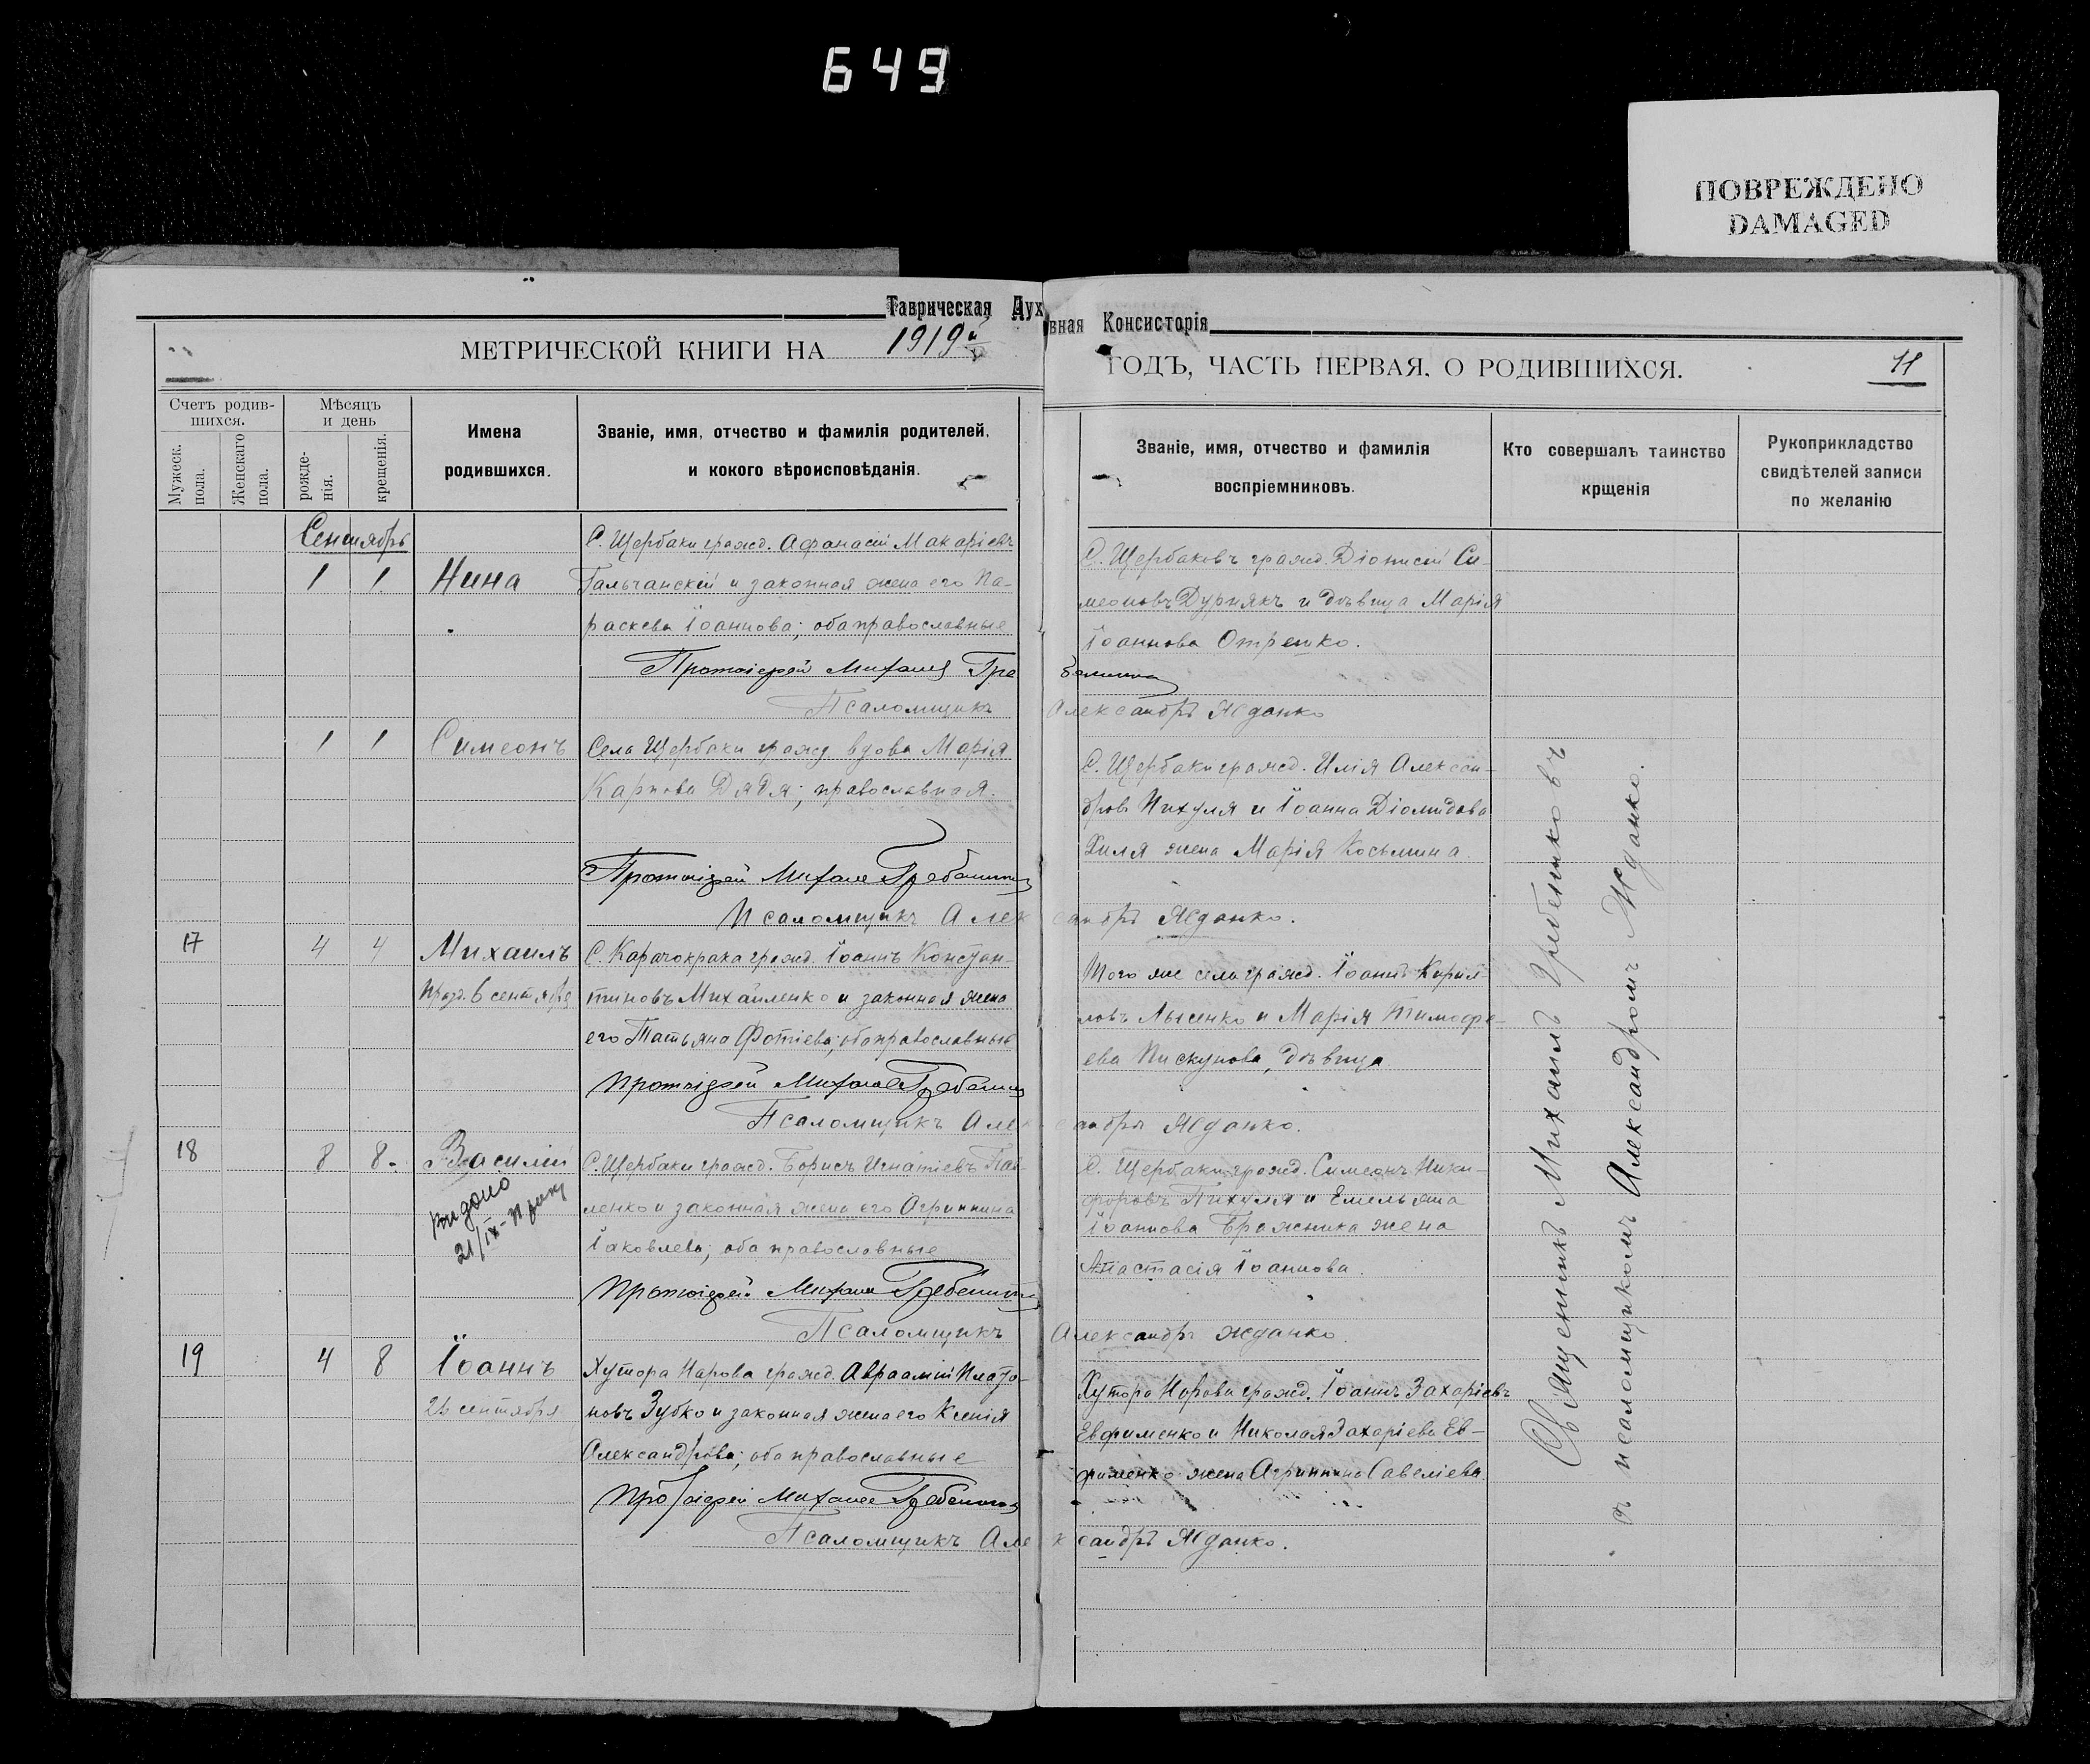 649
ПОВРЕЖДЕНО
DAMAGED
Таврическая Духовная Консисторія
МЕТРИЧЕСКОЙ КНИГИ НА 1919й
ГОДЪ, ЧАСТЬ ПЕРВАЯ, О РОДИВШИХСЯ.
11
Счетъ родив-
шихся.
Мужеск.
пола.
Женскаго
пола.
Мѣсяцъ
и день
рожде-
нія.
крещенія.
Имена
родившихся.
Званіе, имя, отчество и фамилія родителей,
и кокого вѣроисповѣданія.
Званіе, имя, отчество и фамилія
воспріемниковъ.
Кто совершалъ таинство
крщенія
Рукоприкладство
свидѣтелей записи
по желанію
Сентябрь
1 1 Нина
С. Щербаки гражд. Афанасій Макаріевъ
Гальчанскій и законная жена его Па-
раскева Іоаннова; оба православные
С. Щербаковъ гражд. Діонисій Си-
меоновъ Дурнякъ и дѣвица Марія
Іоаннова Отрешко.
Протоіерей Михаилъ
Псаломщикъ Александръ Жданко
1 1 Симеонъ
Села Щербаки гражд. вдова Марія
Карпова Дядя; православная.
С. Щербаки гражд. Илія Алексан-
дровъ Пихуля и Іоанна Діомидова
Хиля жена Марія Косьмина
Протоіерей Михаилъ
Псаломщикъ Александръ Жданко.
17 4 4 Михаилъ
празд. 6 сентября
С. Карачокрака гражд. Іоаннъ Констан-
тиновъ Михайленко и законная жена
его Татьяна Фотіева; оба православные
Того же села гражд. Іоаннъ Кирил-
ловъ Лысенко и Марія Тимофе-
ева Пискунова, дѣвица.
Протоіерей Михаилъ
Псаломщикъ Александръ Жданко.
18 8 8. Василій
видано
21/IX
С. Щербаки гражд. Борисъ Игнатіевъ Пав-
ленко и законная жена его Агриппина
Іаковлева; оба православные
С. Щербаки гражд. Симеонъ Ники-
форовъ Пихуля и Емельяна
Іоаннова Бражника жена
Анастасія Іоаннова.
Протоіерей Михаилъ
Псаломщикъ Александръ Жданко.
19 4 8 Іоаннъ
сентября
Хутора Нарова гражд. Авраамій Плато-
новъ Зубко и законная жена его Ксенія
Александрова; оба православные
Хутора Нарова гражд. Іоаннъ Захаріевъ
Евфименко и Николая Захаріева Ев-
фименко жена Агриппина Савеліева.
Протоіерей Михаилъ
Псаломщикъ Александръ Жданко.
Священникъ Михаилъ Гребенниковъ
съ псаломщикомъ Александромъ Жданко.